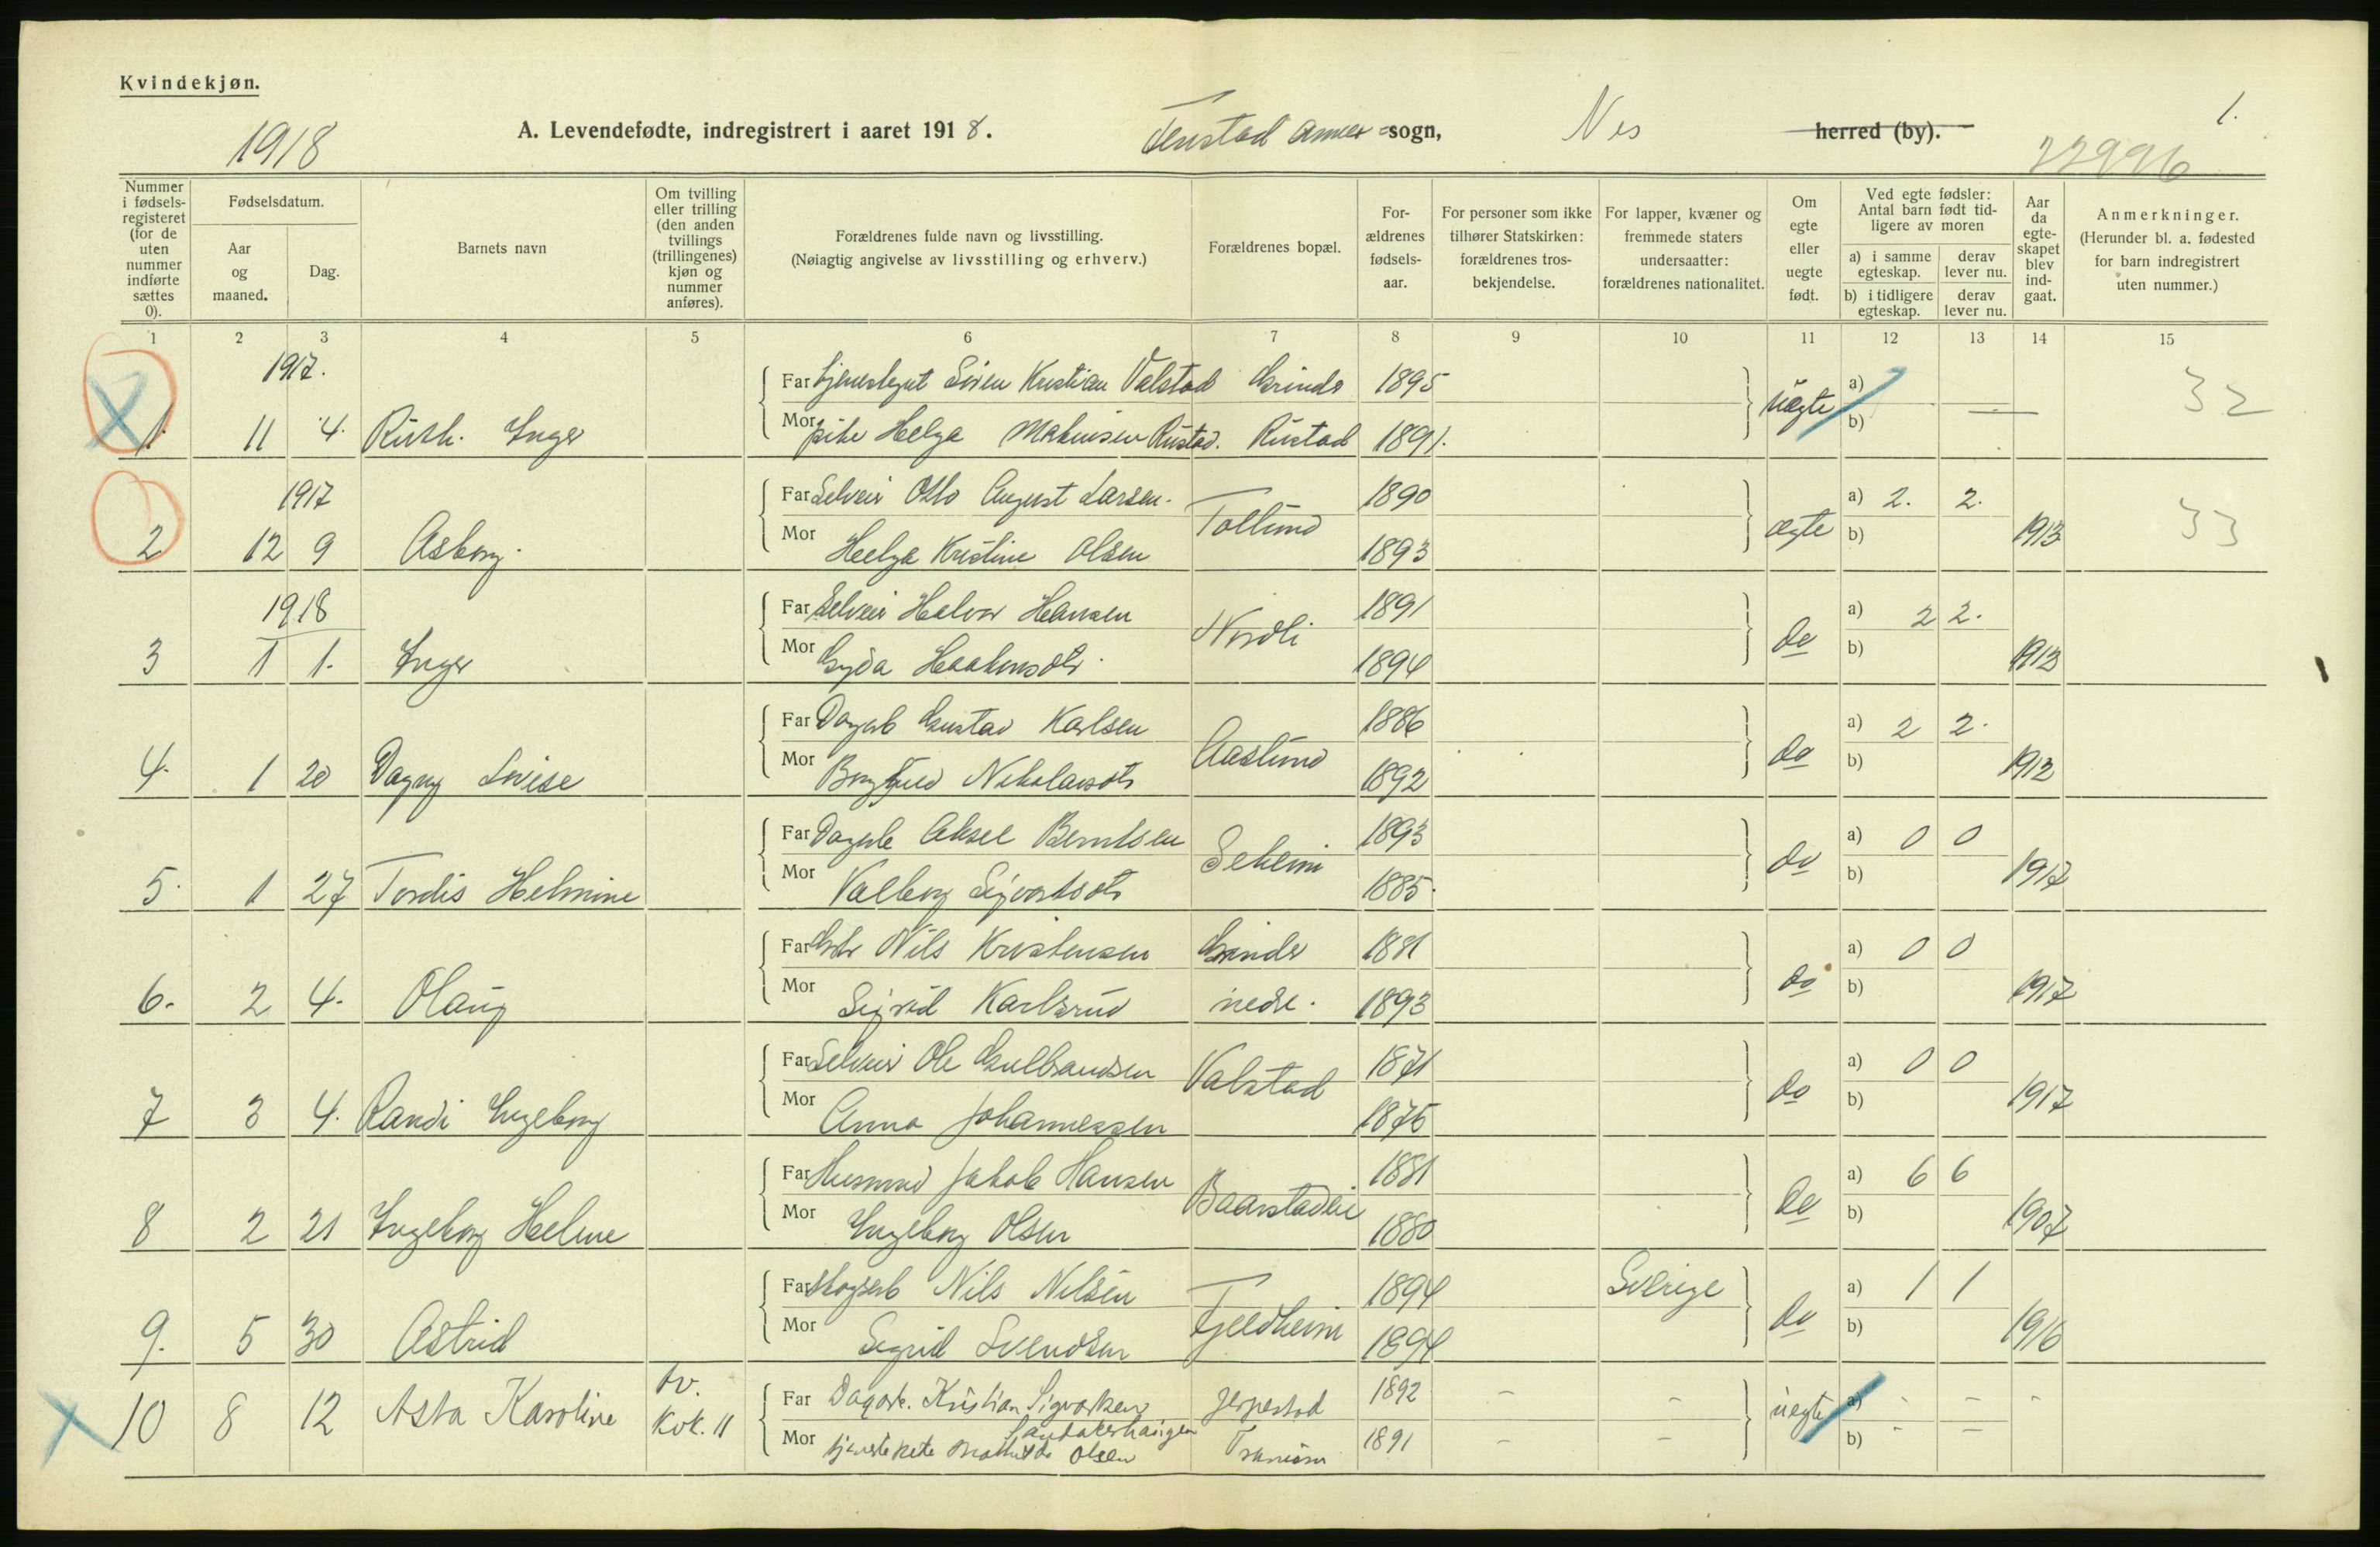 Kvindekjøn.
1918
A. Levendefødte, indregistrert i aaret 1918.
Tenstad Annex =sogn,
Nes
herred (by).
1.
Nummer i fødsels-registeret (for de uten nummer indførte sættes 0).
Fødselsdatum.
Aar og maaned.
Dag.
Barnets navn
Om tvilling eller trilling (den anden tvillings (trillingenes) kjøn og nummer anføres).
Forældrenes fulde navn og livsstilling.
(Nøiagtig angivelse av livsstilling og erhverv.)
Forældrenes bopæl.
For-ældrenes fødsels-aar.
For personer som ikke tilhører Statskirken: forældrenes tros-bekjendelse.
For lapper, kvæner og fremmede staters undersaatter: forældrenes nationalitet.
Om egte eller uegte født.
Ved egte fødsler: Antal barn født tid-ligere av moren
a) i samme egteskap.
derav lever nu.
b) i tidligere egteskap.
derav lever nu.
Aar da egte-skapet blev ind-gaat.
Anmerkninger.
(Herunder bl. a. fødested for barn indregistrert uten nummer.)
1 2 3 4 5 6 7 8 9 10 11 12 13 14 15
1917.
Far Kristian Valstad Grinder 1895
a)
32
1. 11 4. Ruth. Inger
Mor pike Helga Rustad. Rustad 1891.
uegte
b)
1917
Far Selveier Otto August Larsen. 1890
a) 2. 2.
33
2 12 9 Asborg.
Mor Helga Kristine Olsen
Tollund
1893
egte
b)
1913
1918
Far Selveier Halvor Hansen 1891
a) 2 2.
3 1 1. Inger
Mor Gyda Haakensdtr.
Nordli
1894
do
b)
1913
Far Dagarb Gustav Karlsen 1886
a) 2 2.
4. 1 20 Dagny Lovise
Mor Nikolaisdtr
Aaslund
1892
do
b)
1912
Far Dagarb Aksel Berntsen 1893
a) 0 0
5. 1 27 Tordis Helmine
Mor Valborg Sigvartsdtr
1885.
do
b)
1917
Far Nils Kristensen Grinder 1881
a) 0 0
6. 2 4. Olaug
Mor Sigrid Karlsrud nedre. 1893
do
b)
1917
Far Selveier Ole Gulbrandsen 1871
a) 0 0
7 3 4. Randi Ingeborg
Mor Anna Johannessen
Valstad
1875
do
b)
1917
Far Husmand Jakob Hansen 1881
a) 6 6
8 2 21 Ingeborg Helene
Mor Ingeborg Olsen
Baarstadeie
1880
do
b)
1907
Far Skogsarb Nils Nilsen 1894
Sverige
a) 1 1
9. 5 30 Astrid
Mor Sigrid Svendsen
Fjeldheim
1894
do
b)
1916
tv.
Far Dagarb. Kristian Sigvartsen Jerpestad 1892 - -
a) - - -
10 8 12 Asta Karoline
Kvk. 11
uegte
Mor tjenestepike Mathilde Olsen 1891 - -
b) - -